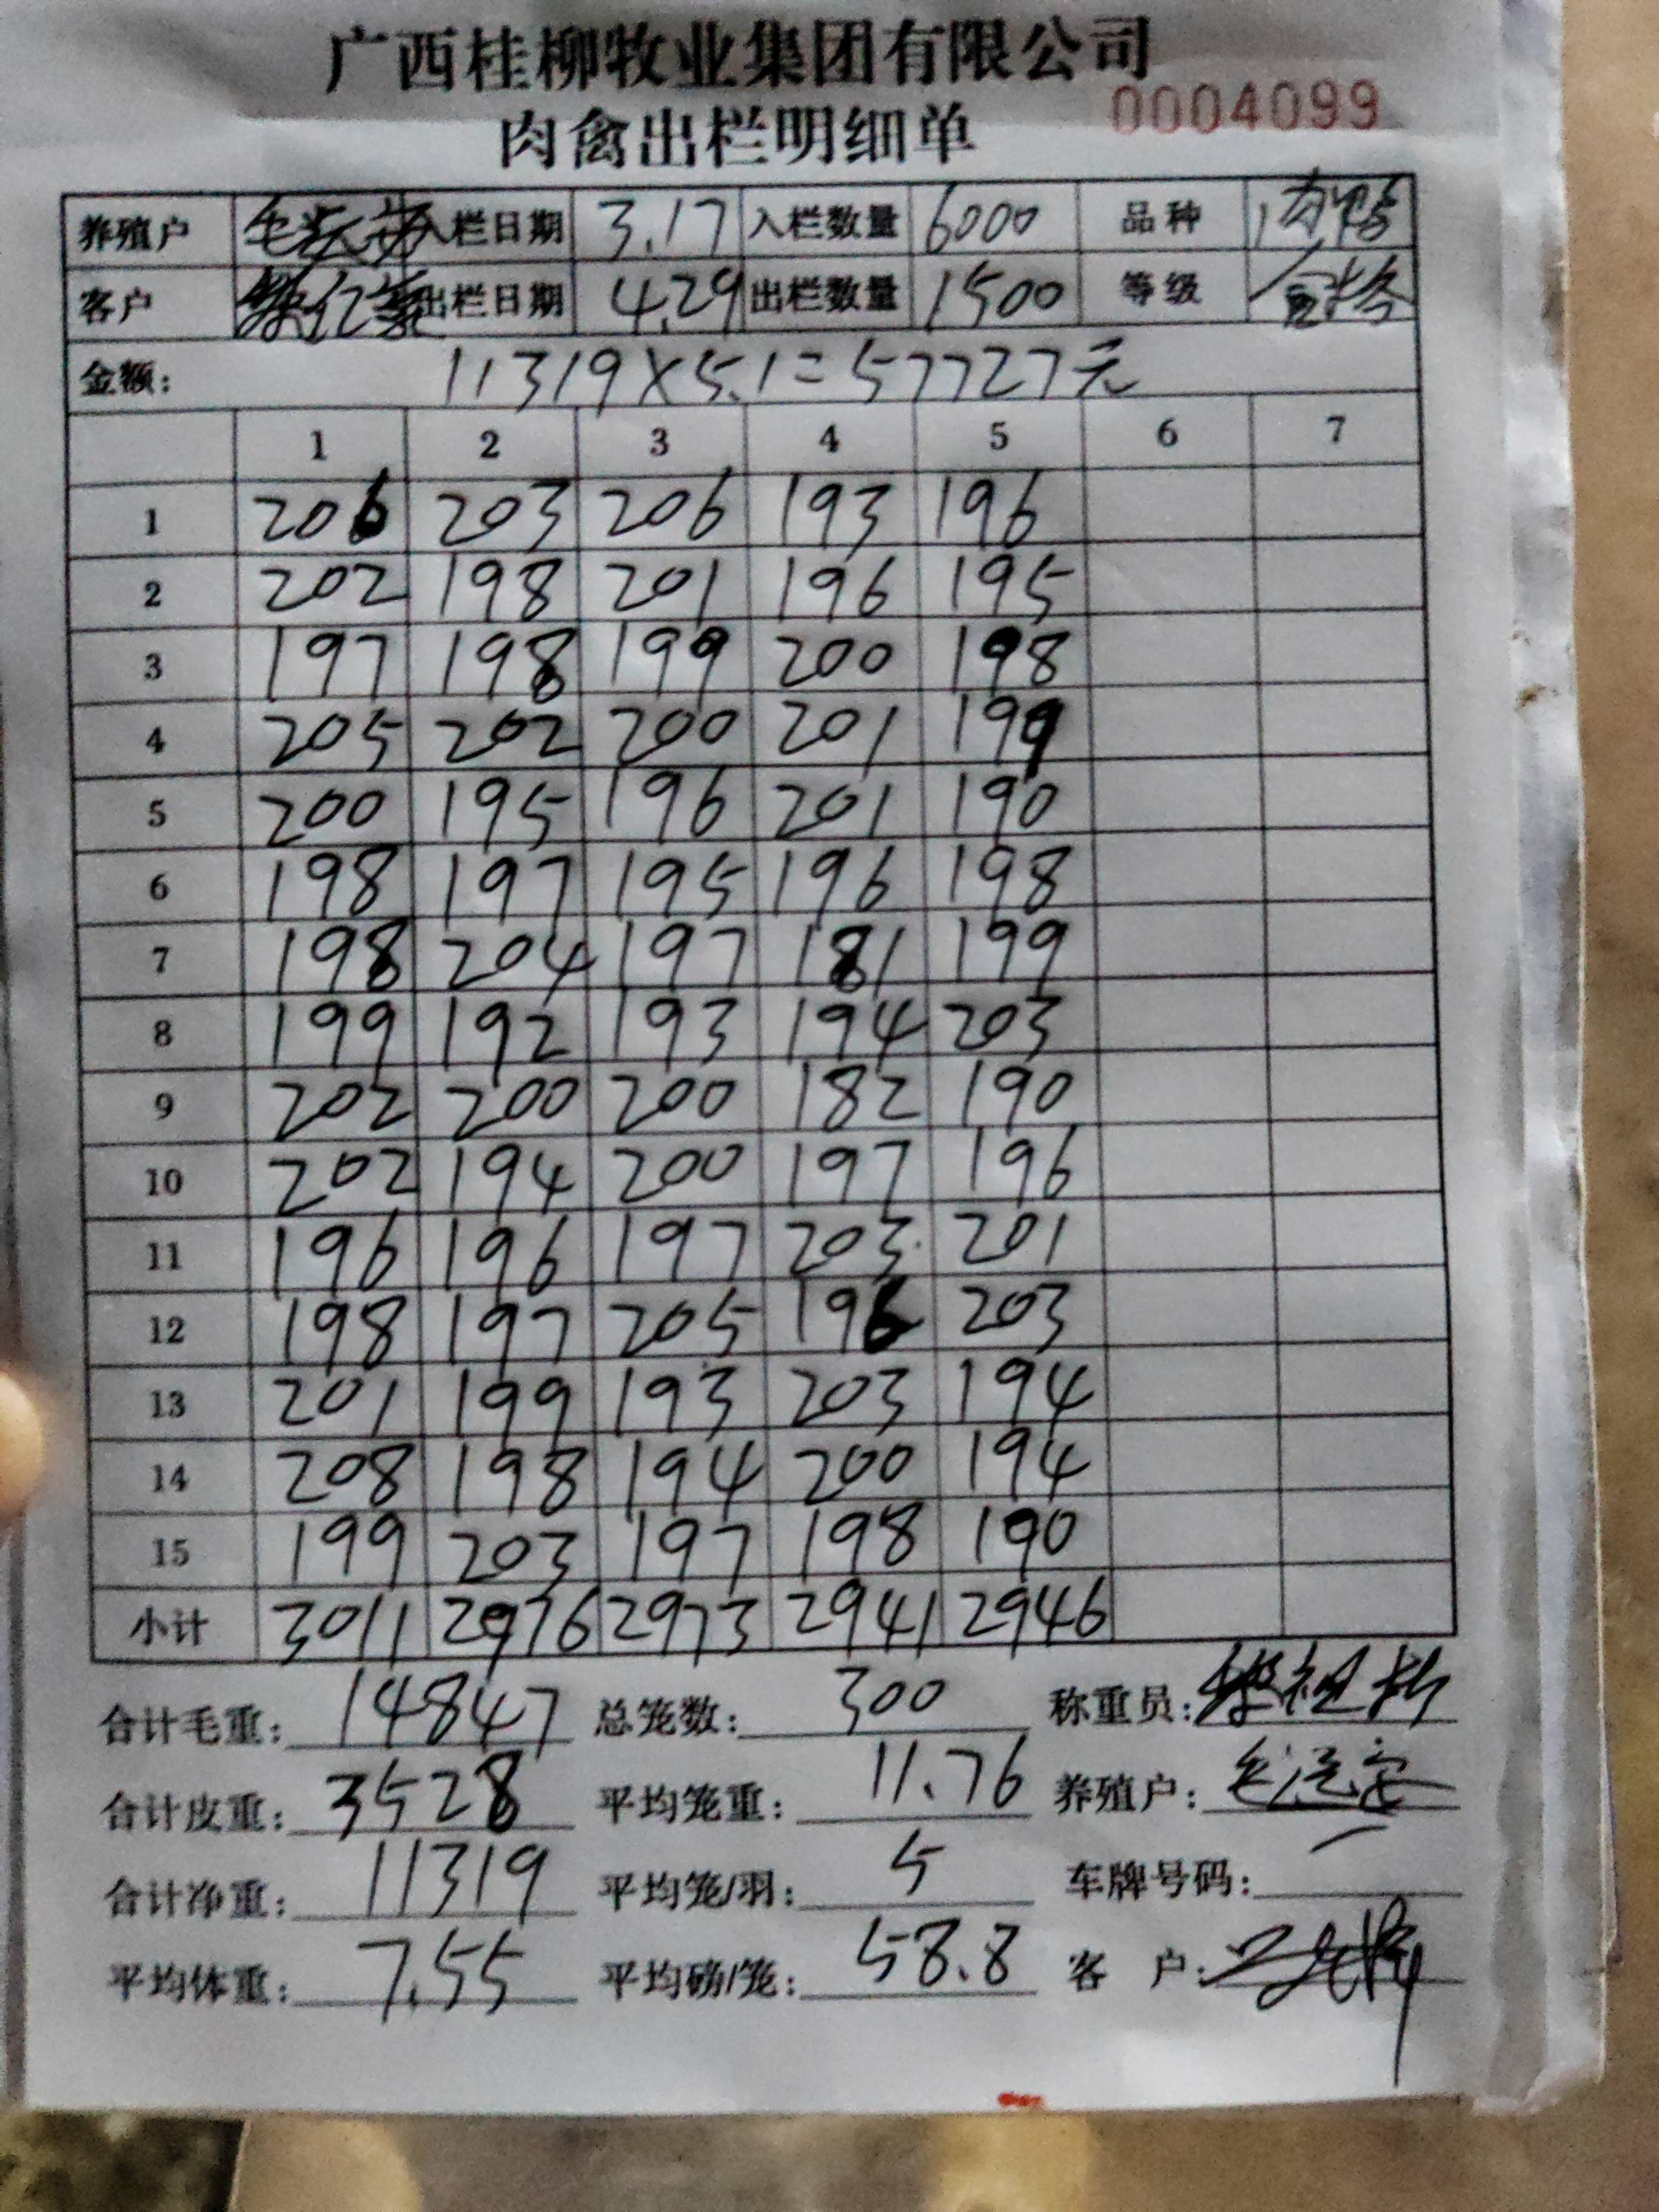 广西桂柳牧业集团有限公司
0004099
肉禽出栏明细单
养殖户 入栏日期 3.17 入栏数量 6000 品种 肉鸭
客户 出栏日期 4.29 出栏数量 1500 等级
金额: 11319×5.1=57727元
1 2 3 4 5 6 7
1 206 203 206 193 196
2 202 198 201 196 195
3 197 198 199 200 198
4 205 202 200 201 199
5 200 195 196 201 190
6 198 197 195 196 198
7 198 204 197 181 199
8 199 192 193 194 203
9 202 200 200 182 190
10 202 194 200 197 196
11 196 196 197 203 201
12 198 197 205 196 203
13 201 199 193 203 194
14 208 198 194 200 194
15 199 203 197 198 190
小计 3011 2976 2973 2941 2946
合计毛重: 14847 总笼数: 300 称重员:
合计皮重: 3528 平均笼重: 11.76 养殖户:
合计净重: 11319 平均笼/羽: 5 车牌号码:
平均体重: 7.55 平均磅/笼: 58.8 客 户: